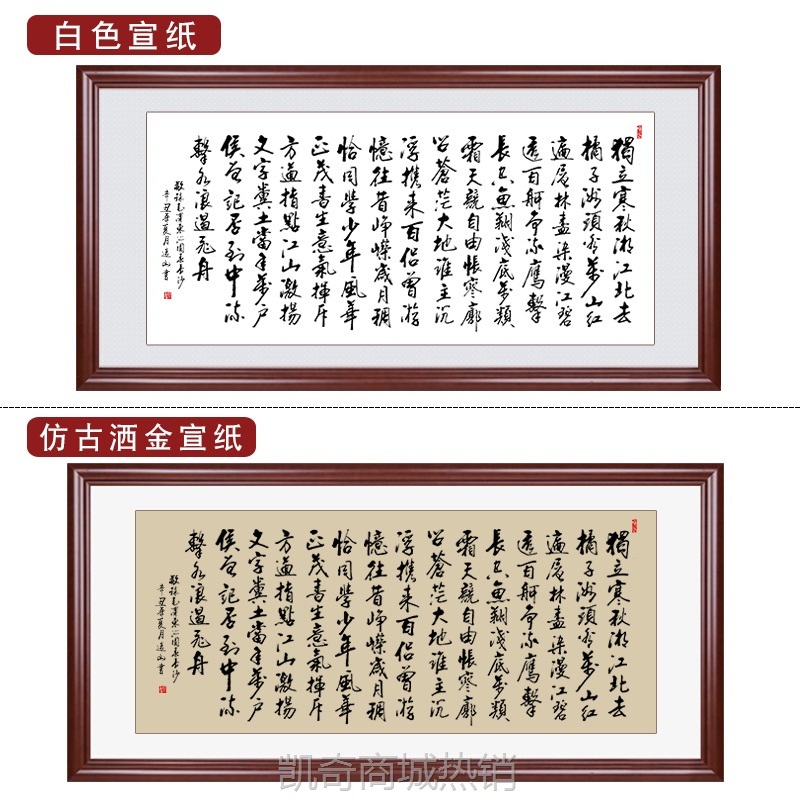 白色宣纸
獨立寒秋湘江北去
橘子洲頭看萬山紅
遍層林盡染漫江碧
透百舸爭流鷹擊
長空魚翔淺底萬類
霜天競自由悵寥廓
問蒼茫大地誰主沉
浮攜来百侣曾游
憶往昔崢嶸歲月稠
恰同學少年風華
正茂書生意氣揮斥
方遒指點江山激揚
文字糞土當年萬户
侯曾記否到中流
擊水浪遏飛舟
敬録毛澤東沁園春長沙
辛丑年夏月遠山書
仿古洒金宣纸
獨立寒秋湘江北去
橘子洲頭看萬山紅
遍層林盡染漫江碧
透百舸爭流鷹擊
長空魚翔淺底萬類
霜天競自由悵寥廓
問蒼茫大地誰主沉
浮攜来百侣曾游
憶往昔崢嶸歲月稠
恰同學少年風華
正茂書生意氣揮斥
方遒指點江山激揚
文字糞土當年萬户
侯曾記否到中流
擊水浪遏飛舟
敬録毛澤東沁園春長沙
辛丑年夏月遠山書
凯奇商城热销